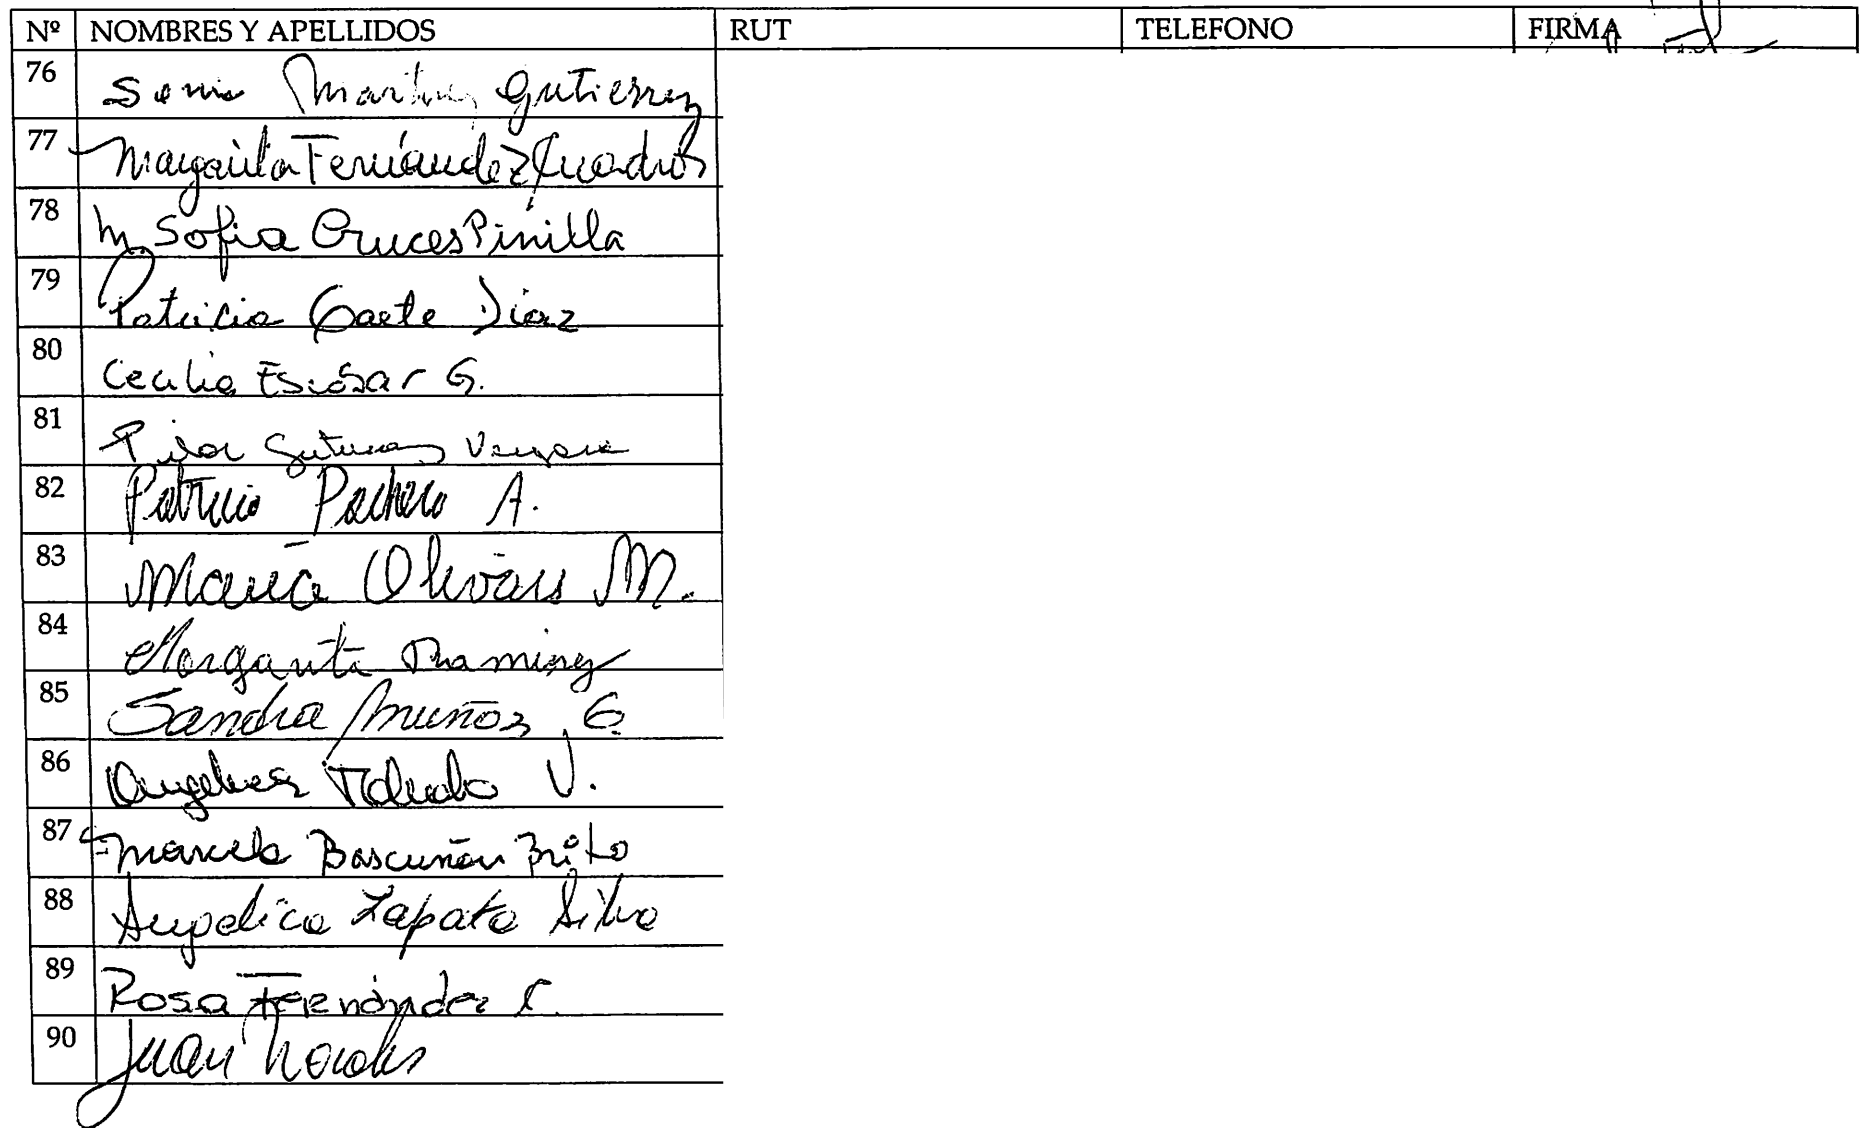 Nº NOMBRES Y APELLIDOS RUT TELEFONO FIRMA
76 Martinez Gutierrez
77 Margarita Fernández Cuadros
78 M. Sofia Cruces Pinilla
79 Patricia Gaete Diaz
80 Cecilia Escobar G.
81 Pilar Gutierrez Vergara
82 Patricio Pacheco A.
83 María Olivares M.
84 Margarita Ramirez
85 Sandra Muñoz G.
86 Angelica Toledo V.
87 Marcela Bascuñan Brito
88 Angelica Zapata Silva
89 Rosa Fernández C.
90 Juan